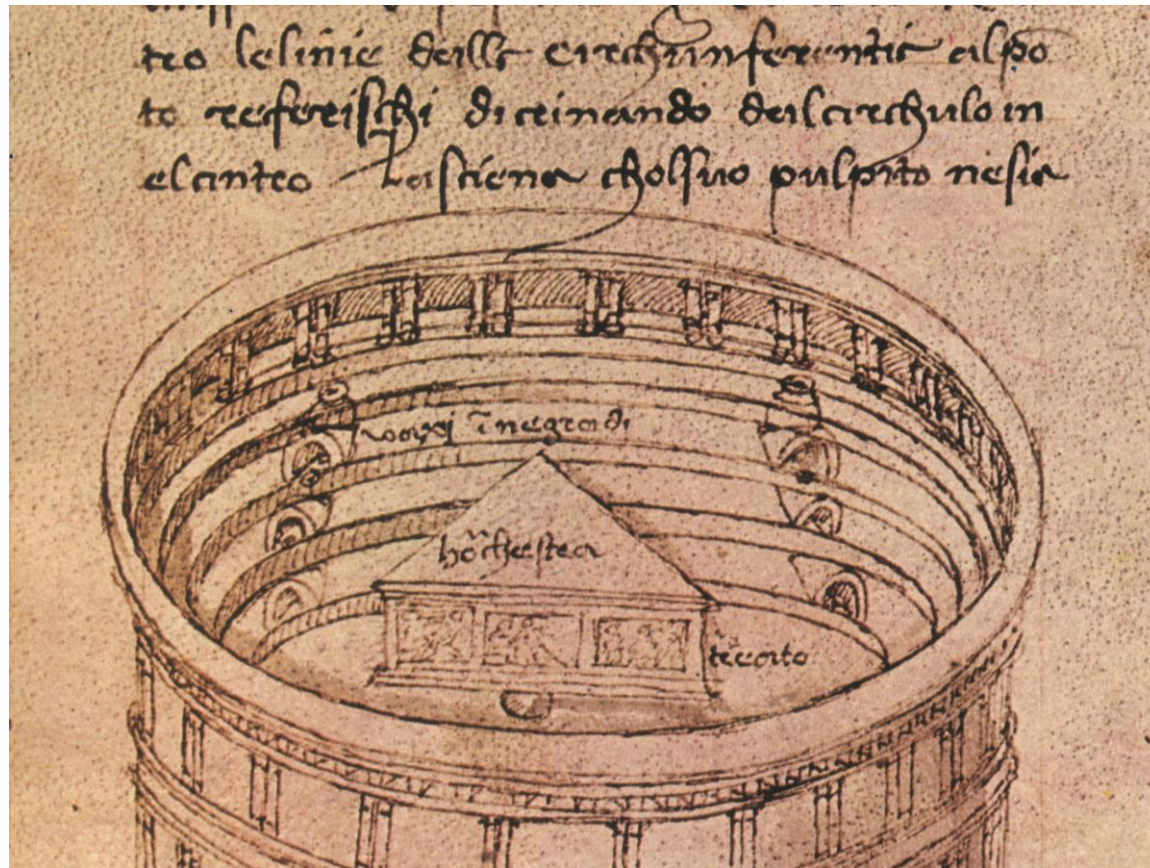 tro le linie delle circhunferentie alpo
to referischi diceinando dal circhulo in
el cintro La sciena chol suo pulpito nesia
vaxxi ĩnegradi
hõrchestra
teeato